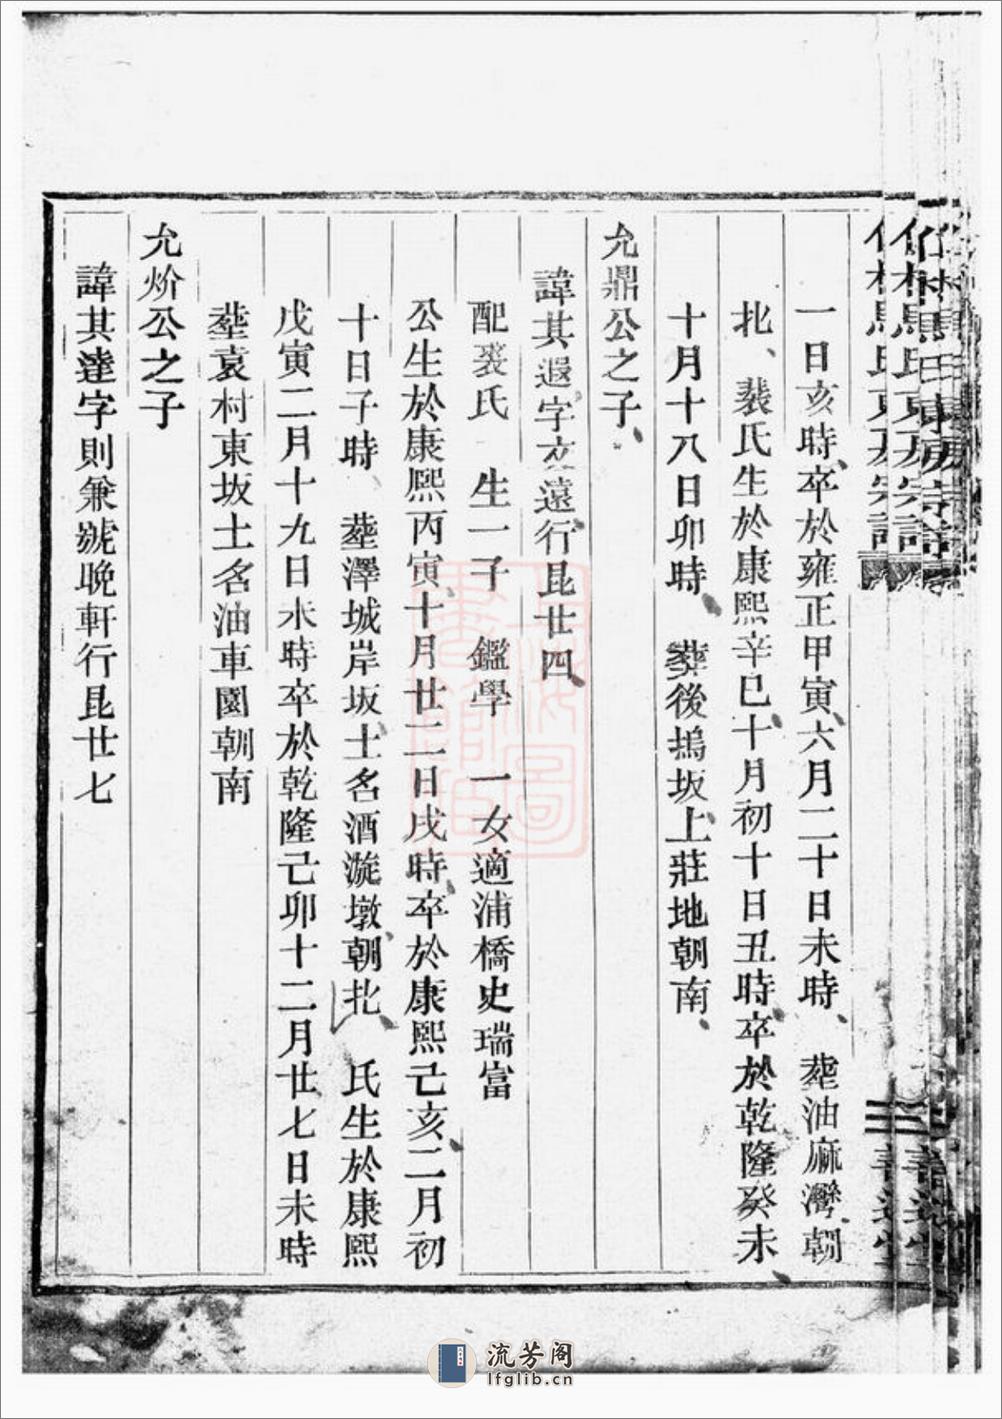 一日亥時卒於雍正甲寅六月二十日未時 葬油麻灣朝
北 裴氏生於康熙辛巳十月初十日丑時卒於乾隆癸未
十月十八日卯時 葬後塢坂上莊地朝南
允鼎公之子
諱其遐字文遠行昆廿四
配裘氏 生一子 鑑學 一女適浦橋史瑞富
公生於康熙丙寅十月廿二日戌時卒於康熙己亥二月初
十日子時 葬澤城岸坂土名酒漩墩朝北 氏生於康熙
戊寅二月十九日未時卒於乾隆己卯十二月廿七日未時
葬袁村東坂土名油車園朝南
允炌公之子
諱其達字則兼號晚軒行昆廿七
流芳阁
lfglib.cn